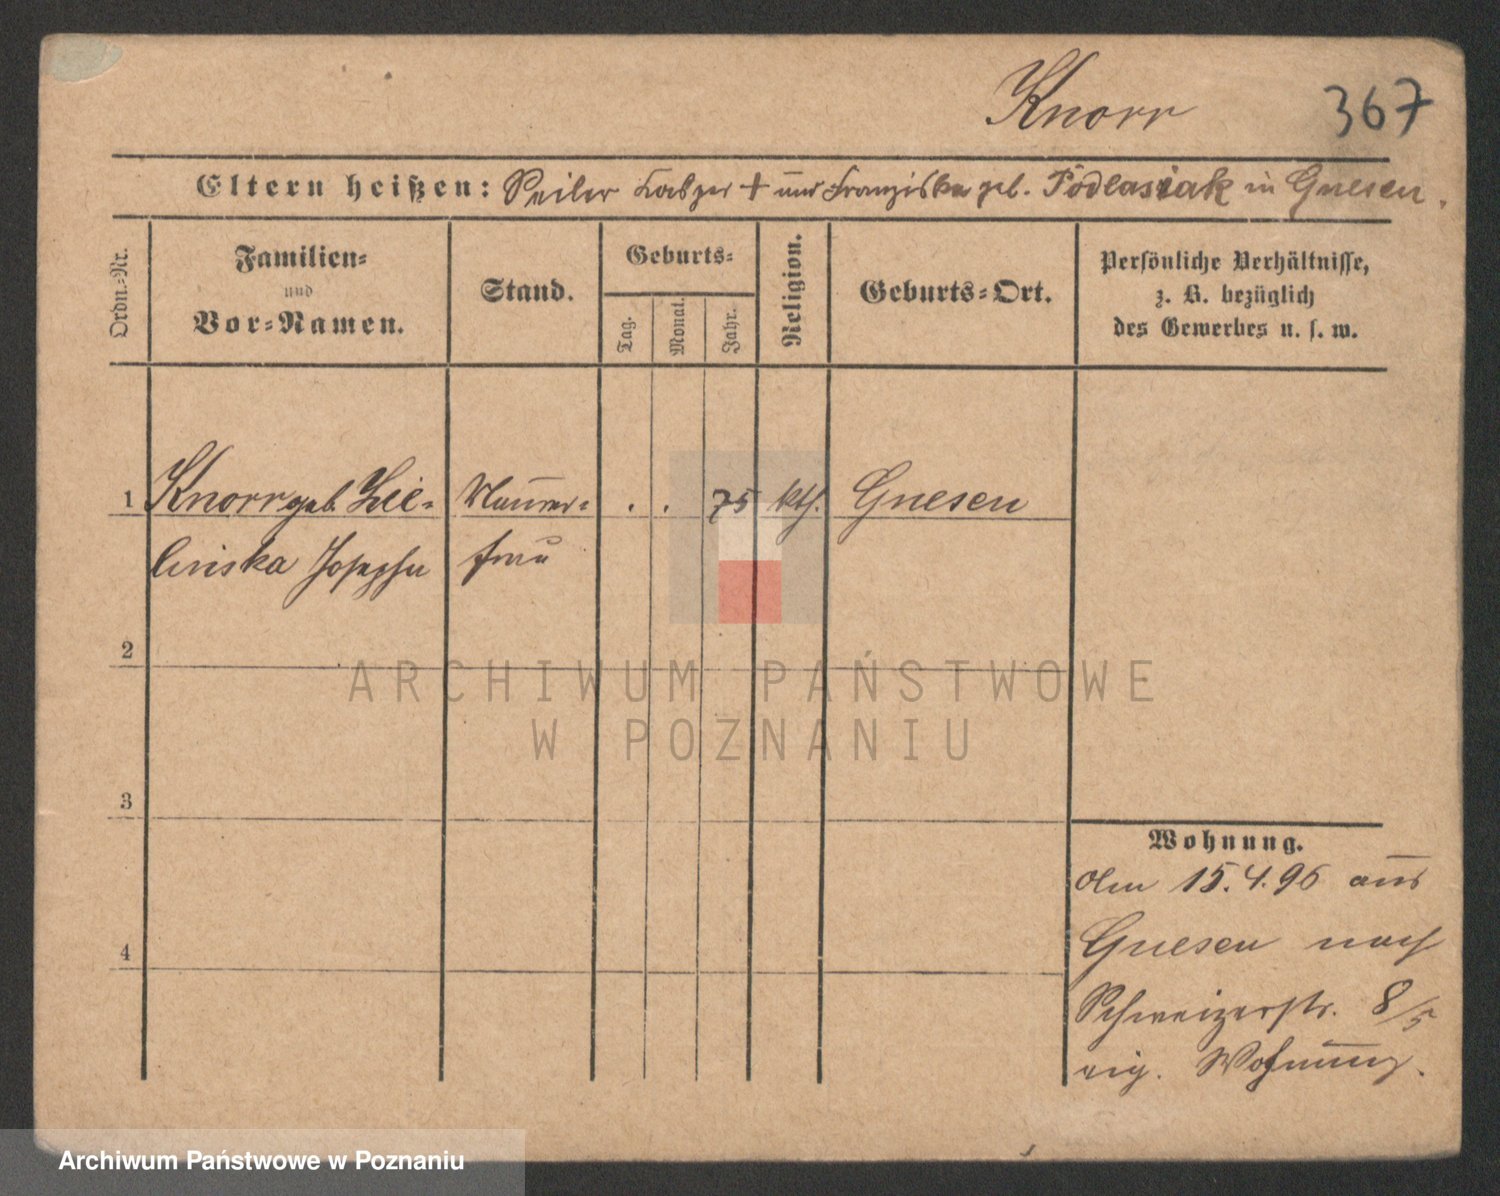 Knorr 367
Eltern heißen: Seiler Kasper + und Franziska geb. Podlasiak in Gnesen.
Ordn.-Nr.
Familien-
und
Vor-Namen.
Stand.
Geburts-
Tag.
Monat.
Jahr.
Religion.
Geburts-Ort.
Persönliche Verhältnisse,
z. B. bezüglich
des Gewerbes u. s. w.
1 Knorr geb. Zie- Maurer- . . 75 kth. Gnesen
linska Josepha frau
2
3
4
Wohnung.
Am 15.4.96 aus
Gnesen nach
Schweizerstr. 8/5
eig. Wohnung.
ARCHIWUM PAŃSTWOWE
W POZNANIU
Archiwum Państwowe w Poznaniu